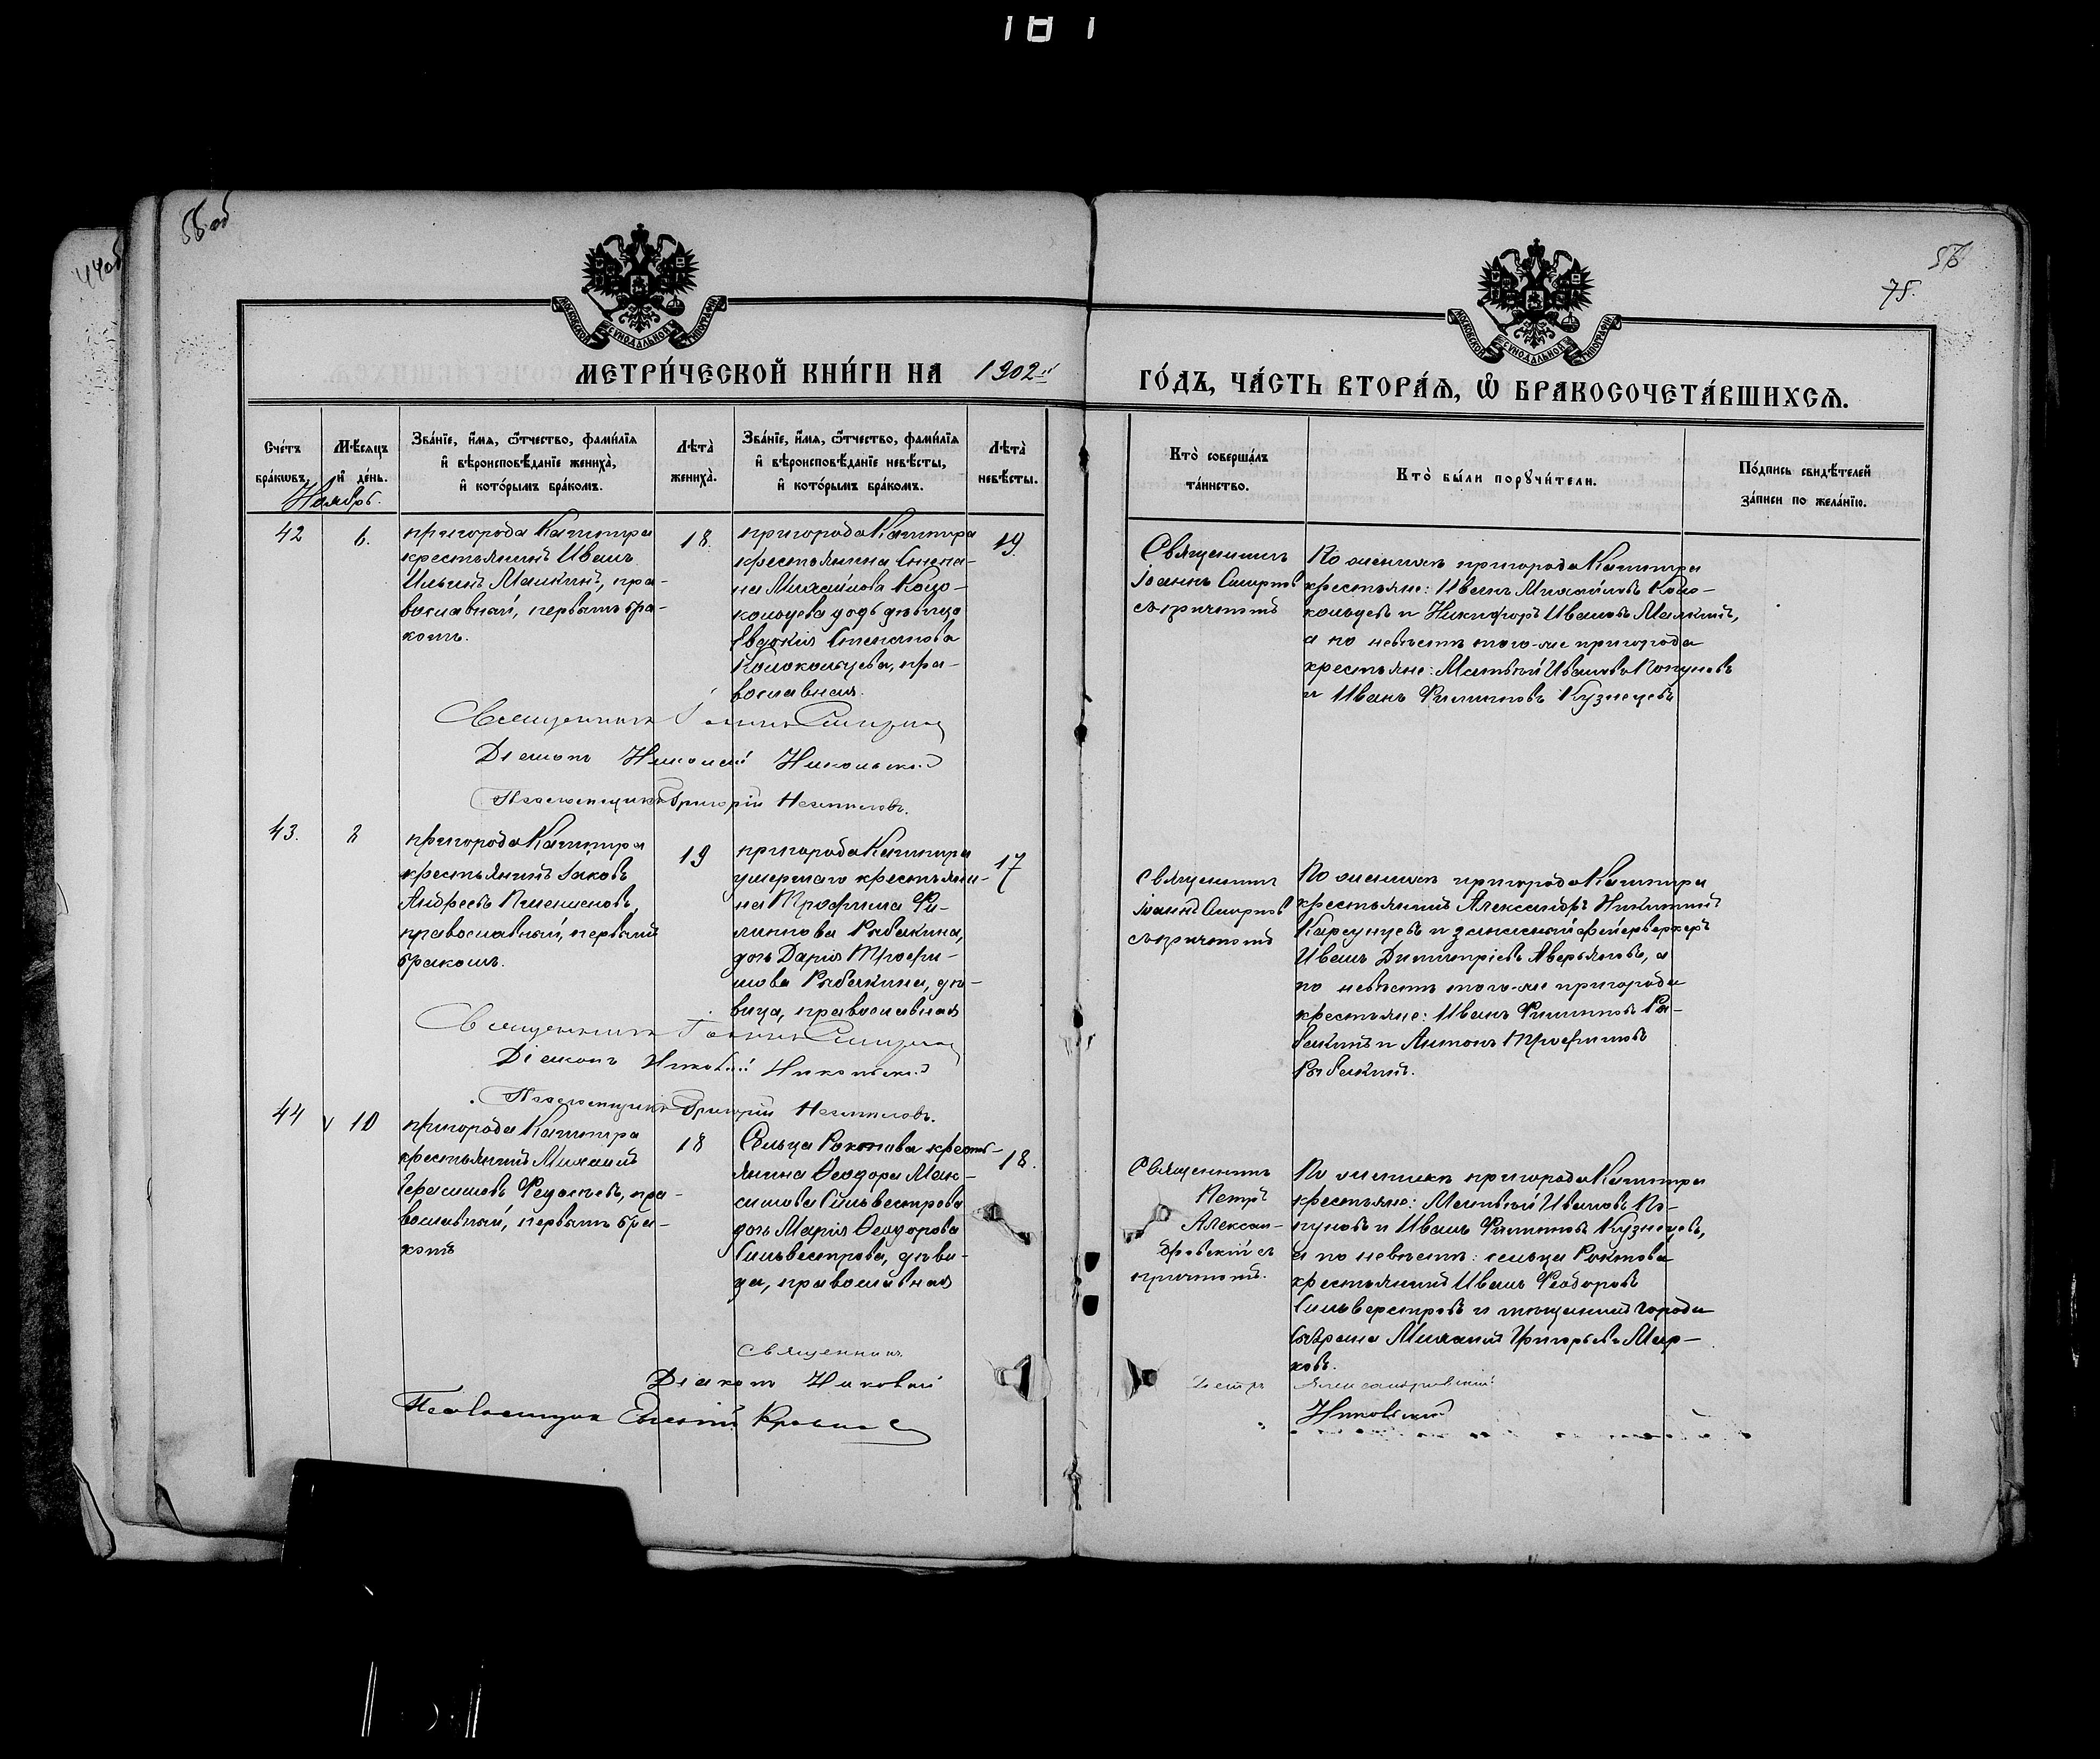 181
55 об
44 об
56
75.
МОСКОВСКОЙ СѴНОДАЛЬНОЙ ТИПОГРАФІИ
МОСКОВСКОЙ СѴНОДАЛЬНОЙ ТИПОГРАФІИ
МЕТРИ́ЧЕСКОЙ КНИ́ГИ НА 1902й
ГО́ДЪ, ЧА́СТЬ ВТОРА́Ѧ, Ѡ҆ БРАКОСОЧЕТА́ВШИХСѦ.
Сче́тъ бра́кωвъ.
Мѣ́сяцъ и҆ де́нь.
Зва́нїе, и҆́мѧ, ѻ҆́тчество, фами́лїѧ и҆ вѣроисповѣ́данїе жениха̀, и҆ кото́рымъ бра́комъ.
Лѣ́та̀ жениха̀.
Зва́нїе, и҆́мѧ, ѻ҆́тчество, фами́лїѧ и҆ вѣроисповѣ́данїе невѣ́сты, и҆ кото́рымъ бра́комъ.
Лѣ́та̀ невѣ́сты.
Кто̀ соверша́лъ та́инство.
Кто̀ бы́ли порꙋчи́тели.
По́дпись свидѣ́телей за́писи по жела́нїю.
Ноябрь.
42
6.
пригорода Кашпира
крестьянинъ Иванъ
Ильинъ Малкинъ, пра-
вославный, первымъ бра-
комъ.
18.
пригорода Кашпира
крестьянина Степа-
на Михайлова Коло-
кольцева дочь дѣвица
Евдокія Степанова
Колокольцева, пра-
вославная.
19.
Священникъ
Іоаннъ Смирновъ
съ причтомъ
По женихѣ пригорода Кашпира
крестьяне: Иванъ Михайловъ Коло-
кольцевъ и Никифоръ Ивановъ Малкинъ,
а по невѣстѣ того-же пригорода
крестьяне: Матвѣй Ивановъ Копуновъ
и Иванъ Филиповъ Кузнецовъ
Священникъ Іоаннъ Смирнов
Діаконъ Николай Никольскій
Псаломщикъ Григорій
43.
пригорода Кашпира
крестьянинъ Іаковъ
Андреевъ
православный, первымъ
бракомъ.
19
пригорода Кашпира
умершаго крестьяни-
на Трофима Фи-
липпова Рыбакина,
дочь Дарія Трофи-
мова Рыбакина, дѣ-
вица, православная
17
Священникъ
Іоаннъ Смирновъ
съ причтомъ
По женихѣ пригорода Кашпира
крестьянинъ Александръ Никитинъ
Карсунцевъ и запасный фейерверкеръ
Иванъ Димитріевъ Аверьяновъ, а
по невѣстѣ того-же пригорода
крестьяне: Иванъ Филиповъ Ры-
бакинъ и Антонъ Трофимовъ
Рыбакинъ.
Священникъ Іоаннъ Смирнов
Діаконъ Николай Никольскій
Псаломщикъ Григорій
44
10
пригорода Кашпира
крестьянинъ Михаилъ
Герасимовъ Федосѣевъ, пра-
вославный, первымъ бра-
комъ
18
Сельца Роктова кресть-
янина Ѳеодора Мак-
симова Сильвестрова
дочь Марія Ѳеодорова
Сильвестрова, дѣви-
ца, православная
18.
Священникъ
Петръ
Алексан-
дровскій съ
причтомъ.
По женихѣ пригорода Кашпира
крестьяне: Матвѣй Ивановъ Ко-
пуновъ и Иванъ Филиповъ Кузнецовъ,
а по невѣстѣ: сельца Роктова
крестьянинъ Иванъ Феодоровъ
Сильверстровъ и мѣщанинъ города
Сызрана Михаилъ Григорьевъ Мар-
ковъ.
Священникъ Петръ Александровскій
Діаконъ Николай Никольскій
Псаломщик Евгеній